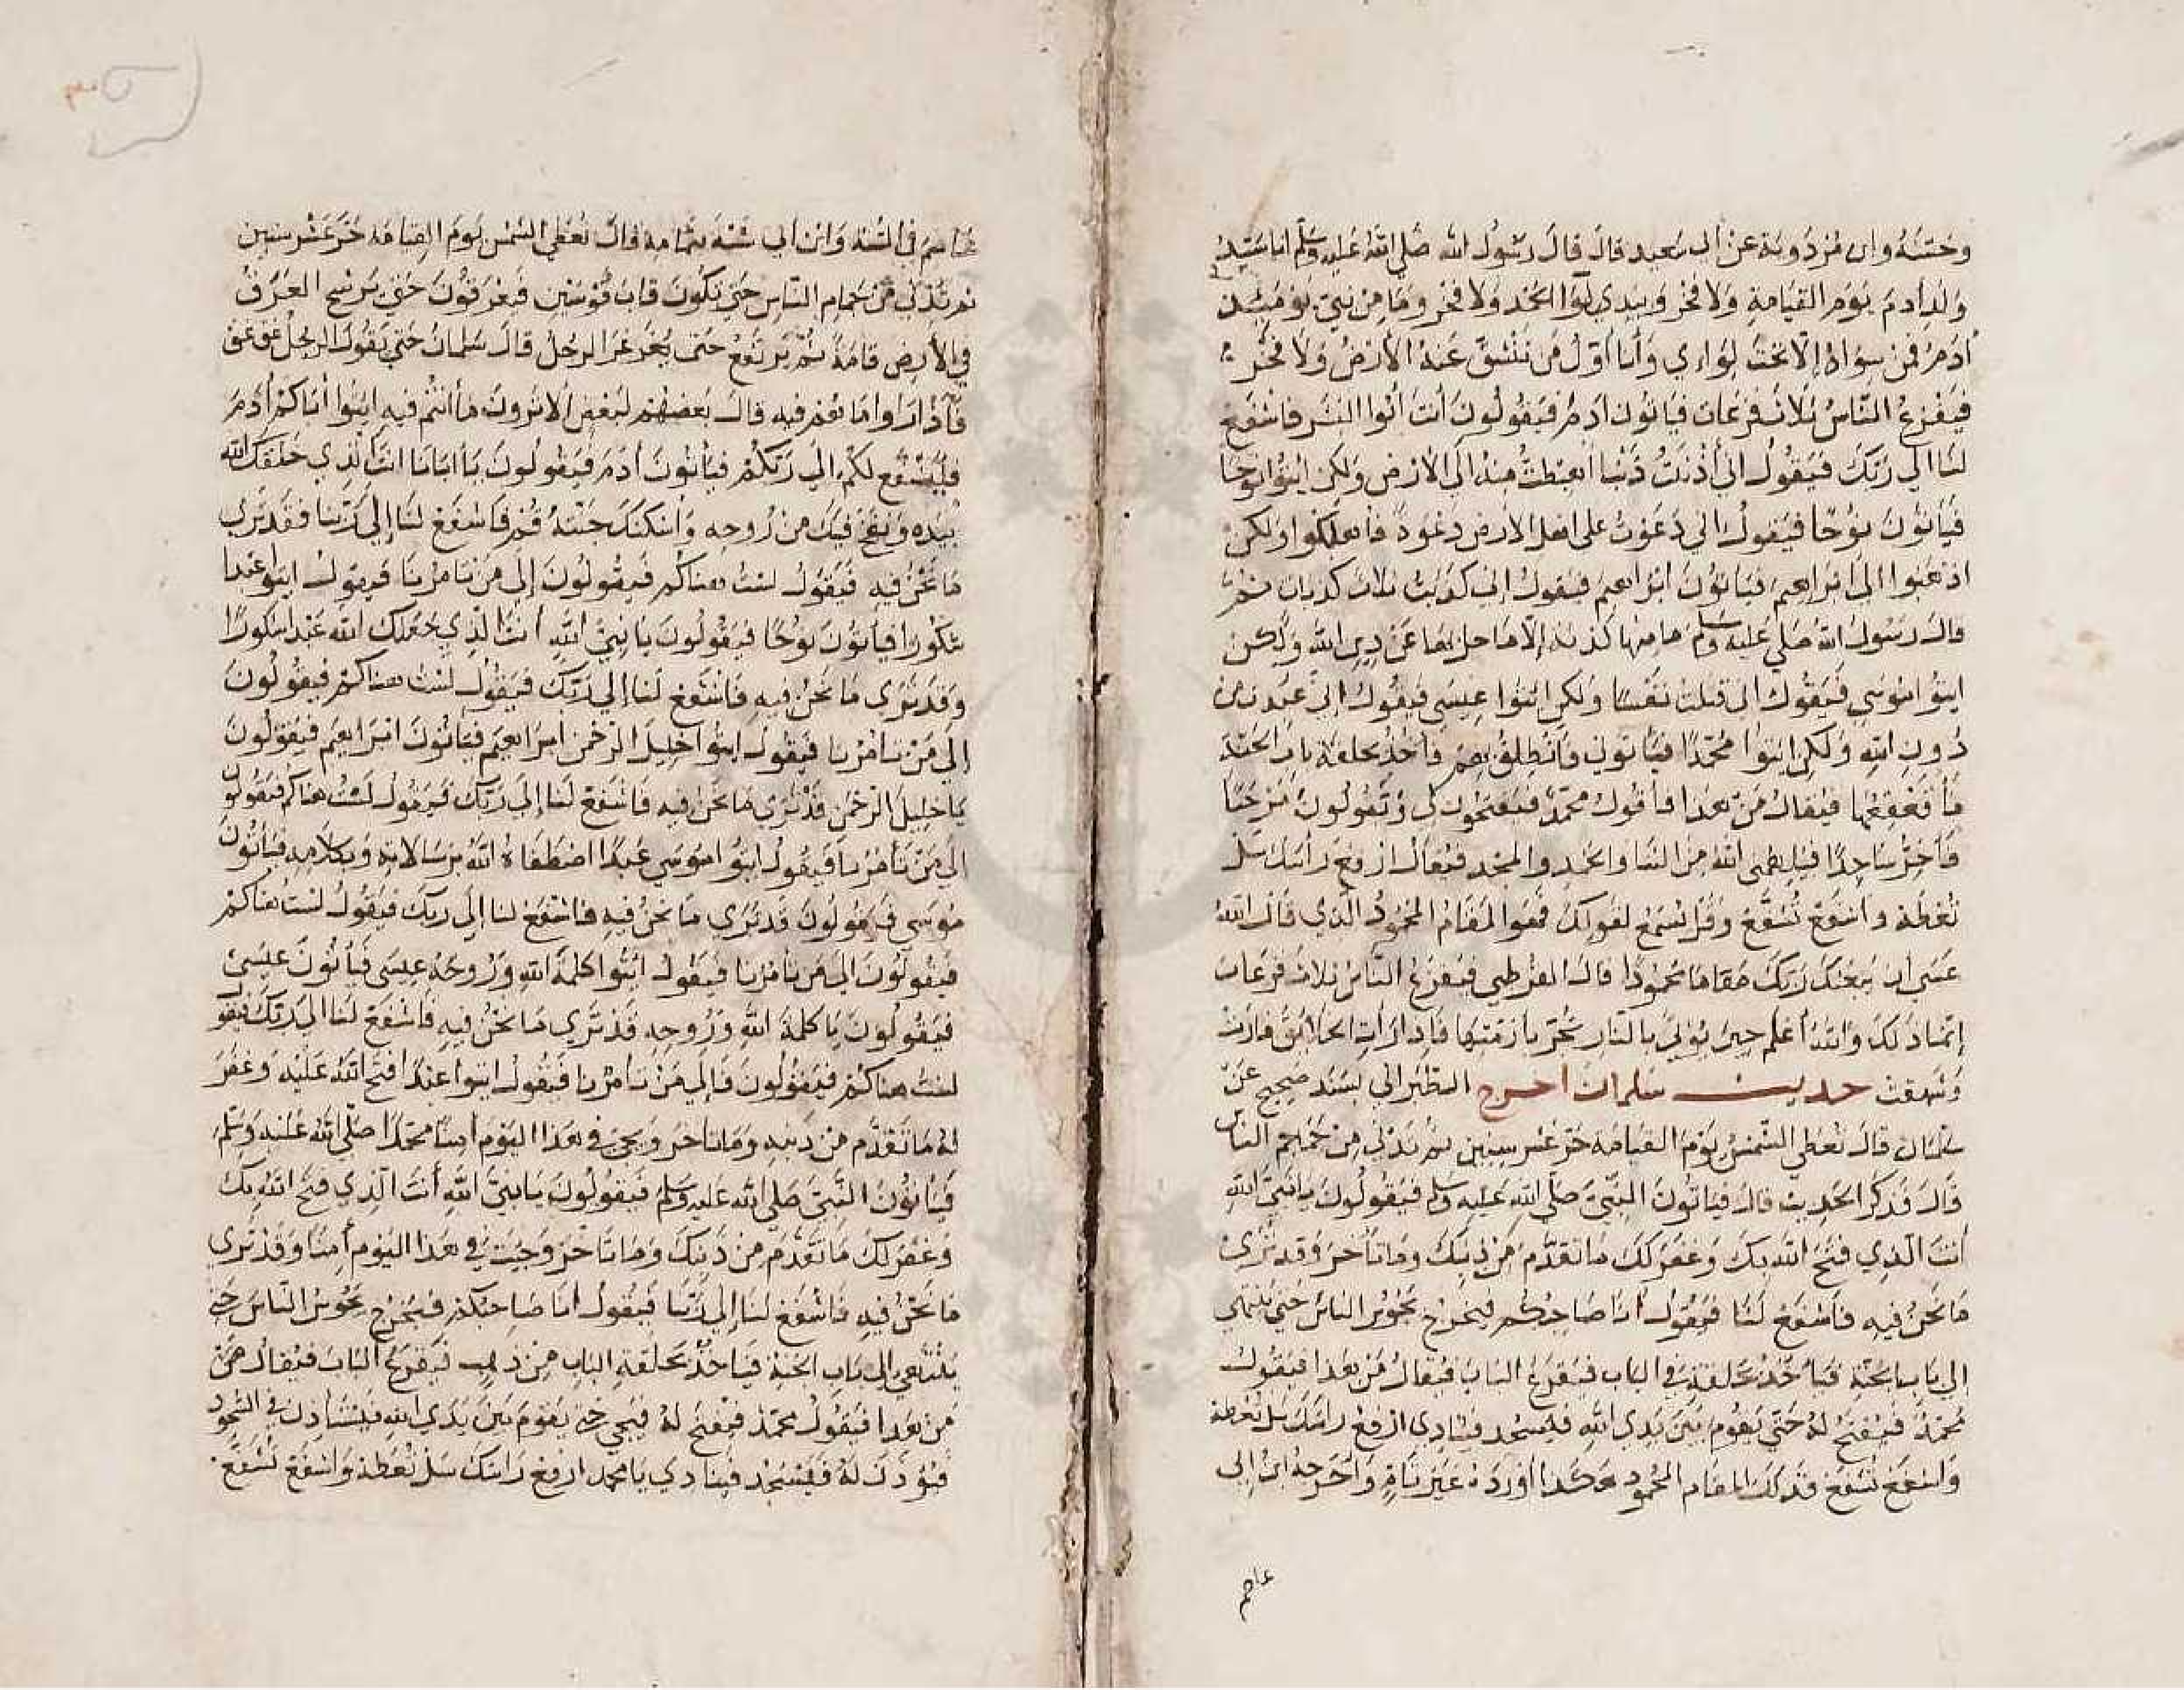 وحسنه وابن مردوية عن أبي سعيد قال قال رسول الله صلى الله عليه وسلم انا سيد
ولد آدم يوم القيامة ولا فخر وبيدي لوا الحمد ولا فخر وما من نبي يومئذ
آدم فمن سواه إلا تحت لوائي وأنا أول من تنشق عنه الأرض ولا فخر
فيفزع الناس ثلاث فزعات فيأتون آدم فيقولون أنت أبوا البشر فاشفع
لنا الي ربك فيقول اني أذنبت ذنبا أهبطت منه الى الارض ولكن ايتوا نوحا
فيأتون نوحا فيقول اني دعوت على اهل الارض دعوة فأهلكوا ولكن
اذهبوا الى ابراهيم فيأتون ابراهيم فيقول اني كذبت ثلاث كذبات ثم
قال رسول الله صلى عليه وسلم ما منها كذبة إلا ما حل بها عن دين الله ولكن
ايتوا موسي فيقول اني قتلت نفسا ولكن ائتوا عيسى فيقول اني عبدت من
دون الله ولكن ايتوا محمدا فيأتوني فأنطلق معهم فآخذ بحلقة باب الجنة
فأقعقعها فيقال من هذا فأقول محمد فيفتحون لي ويقولون مرحبا
فأخر ساجدا فيلهمني الله من الثنا والحمد والمجد فيقال ارفع رأسك سل
تعطه واشفع تشفع وقل يسمع لقولك فهو المقام المحمود الذي قال الله
عسى ان يبعثك ربك مقاما محمودا قال القرطبي فيفزع الناس ثلاث فزعات
إنما ذلك والله أعلم حين يؤتي بالنار تجر بأزمتها فإذا رأت الخلائق فارت
وشهقت حديث سلمان اخرج الطبراني بسند صحيح عن
سلمان قال تعطى الشمس يوم القيامة حر عشر سنين ثم تدني من جماجم الناس
قال فذكر الحديث قال فيأتون النبي صلى الله عليه وسلم فيقولون يا نبي الله
أنت الذي فتح الله بك وغفر لك ما تقدم من ذنبك وما تأخر وقد تري
ما نحن فيه فاشفع لنا فيقول أنا صاحبكم فيخرج يجوس الناس حتى ينتهي
الى باب الجنة فيأخذ بحلقة في الباب فيقرع الباب فيقال من هذا فيقول
محمد فيفتح له حتى يقوم بين يدي الله فيسجد فينادي ارفع راسك سل تعطه
واشفع تشفع فذلك المقام المحمود هكذا أورده غير تام وأخرجه ابن ابي
عاصم
عاصم في السنة وابن ابي شيبة بتمامه قال تعطي الشمس يوم القيامة حر عشر سنين
ثم تدني من جماجم الناس حتى تكون قاب قوسين فيعرقون حتى يرشح العرق
في الأرض قامة ثم يرتفع حتى يغرغر الرجل قال سلمان حتى يقول الرجل غق غق
فإذا راوا ما هم فيه قال بعضهم لبعض الا ترون ما أنتم فيه ايتوا أباكم آدم
فليشفع لكم الي ربكم فيأتون آدم فيقولون يا أبانا انت الذي خلقك الله
بيده ونفخ فيك من روحه وأسكنك جنته قم فاشفع لنا إلي ربنا فقد تري
ما نحن فيه فيقول لست هناكم فيقولون إلى من تأمرنا فيقول ايتوا عبدا
شكورا فيأتون نوحا فيقولون يا نبي الله أنت الذي جعلك الله عبدا شكورا
وقد تري ما نحن فيه فاشفع لنا إلي ربك فيقول لست هناكم فيقولون
إلي من تأمرنا فيقول ايتوا خليل الرحمن ابراهيم فيأتون ابراهيم فيقولون
يا خليل الرحمن قد تري ما نحن فيه فاشفع لنا إلي ربك فيقول لست هناكم فيقولون
الي من تأمرنا فيقول ايتوا موسي عبدا اصطفاه الله برسالاته وبكلامه فيأتون
موسي فيقولون قد تري ما نحن فيه فاشفع لنا إلى ربك فيقول لست هناكم
فيقولون الي من تأمرنا فيقول ائتوا كلمة الله وروحه عيسى فيأتون عيسى
فيقولون يا كلمة الله وروحه قد تري ما نحن فيه فاشفع لنا الي ربك فيقو
لست هناكم فيقولون فإلي من تأمرنا فيقول ايتوا عبدا فتح الله عليه وغفر
له ما تقدم من ذنبه وما تأخر ويجئ في هذا اليوم آمنا محمدا صلى الله عليه وسلم
فيأتون النبي صلى الله عليه وسلم فيقولون يا نبي الله أنت الذي فتح الله بك
وغفر لك ما تقدم من ذنبك وما تأخر وجيت في هذا اليوم آمنا وقد تري
ما نحن فيه فاشفع لنا إلي ربنا فيقول أنا صاحبكم فيخرج يجوس الناس حتى
ينتهي إلى باب الجنة فيأخذ بحلقة الباب من ذهب فيقرع الباب فيقال من
من هذا فيقول محمد فيفتح له فيجي حتى يقوم بين يدي الله فيستاذن في السجود
فيؤذن له فيسجد فينادي يا محمد ارفع راسك سل تعطه واشفع تشفع